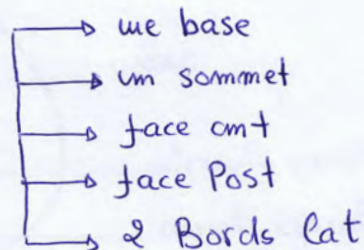 une base
un sommet
face ant
face Post
2 Bords lat